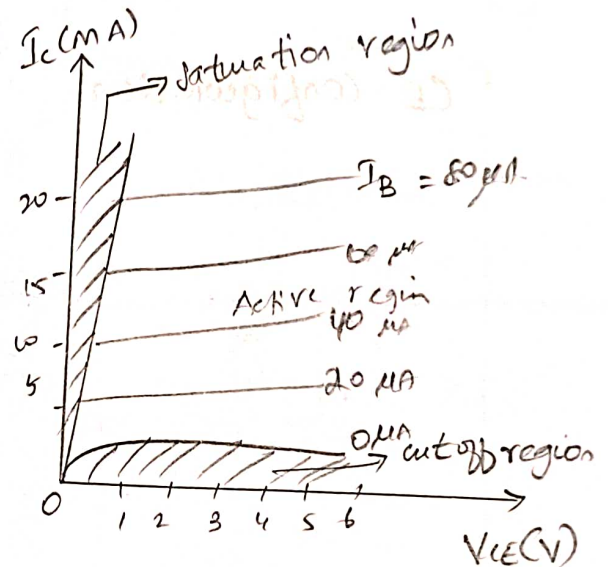 Ic (mA)
Saturation region
20
IB = 80 μA
15
60 μA
Active region
10
40 μA
5
20 μA
0 μA
cutoff region
0
1 2 3 4 5 6
VCE (V)